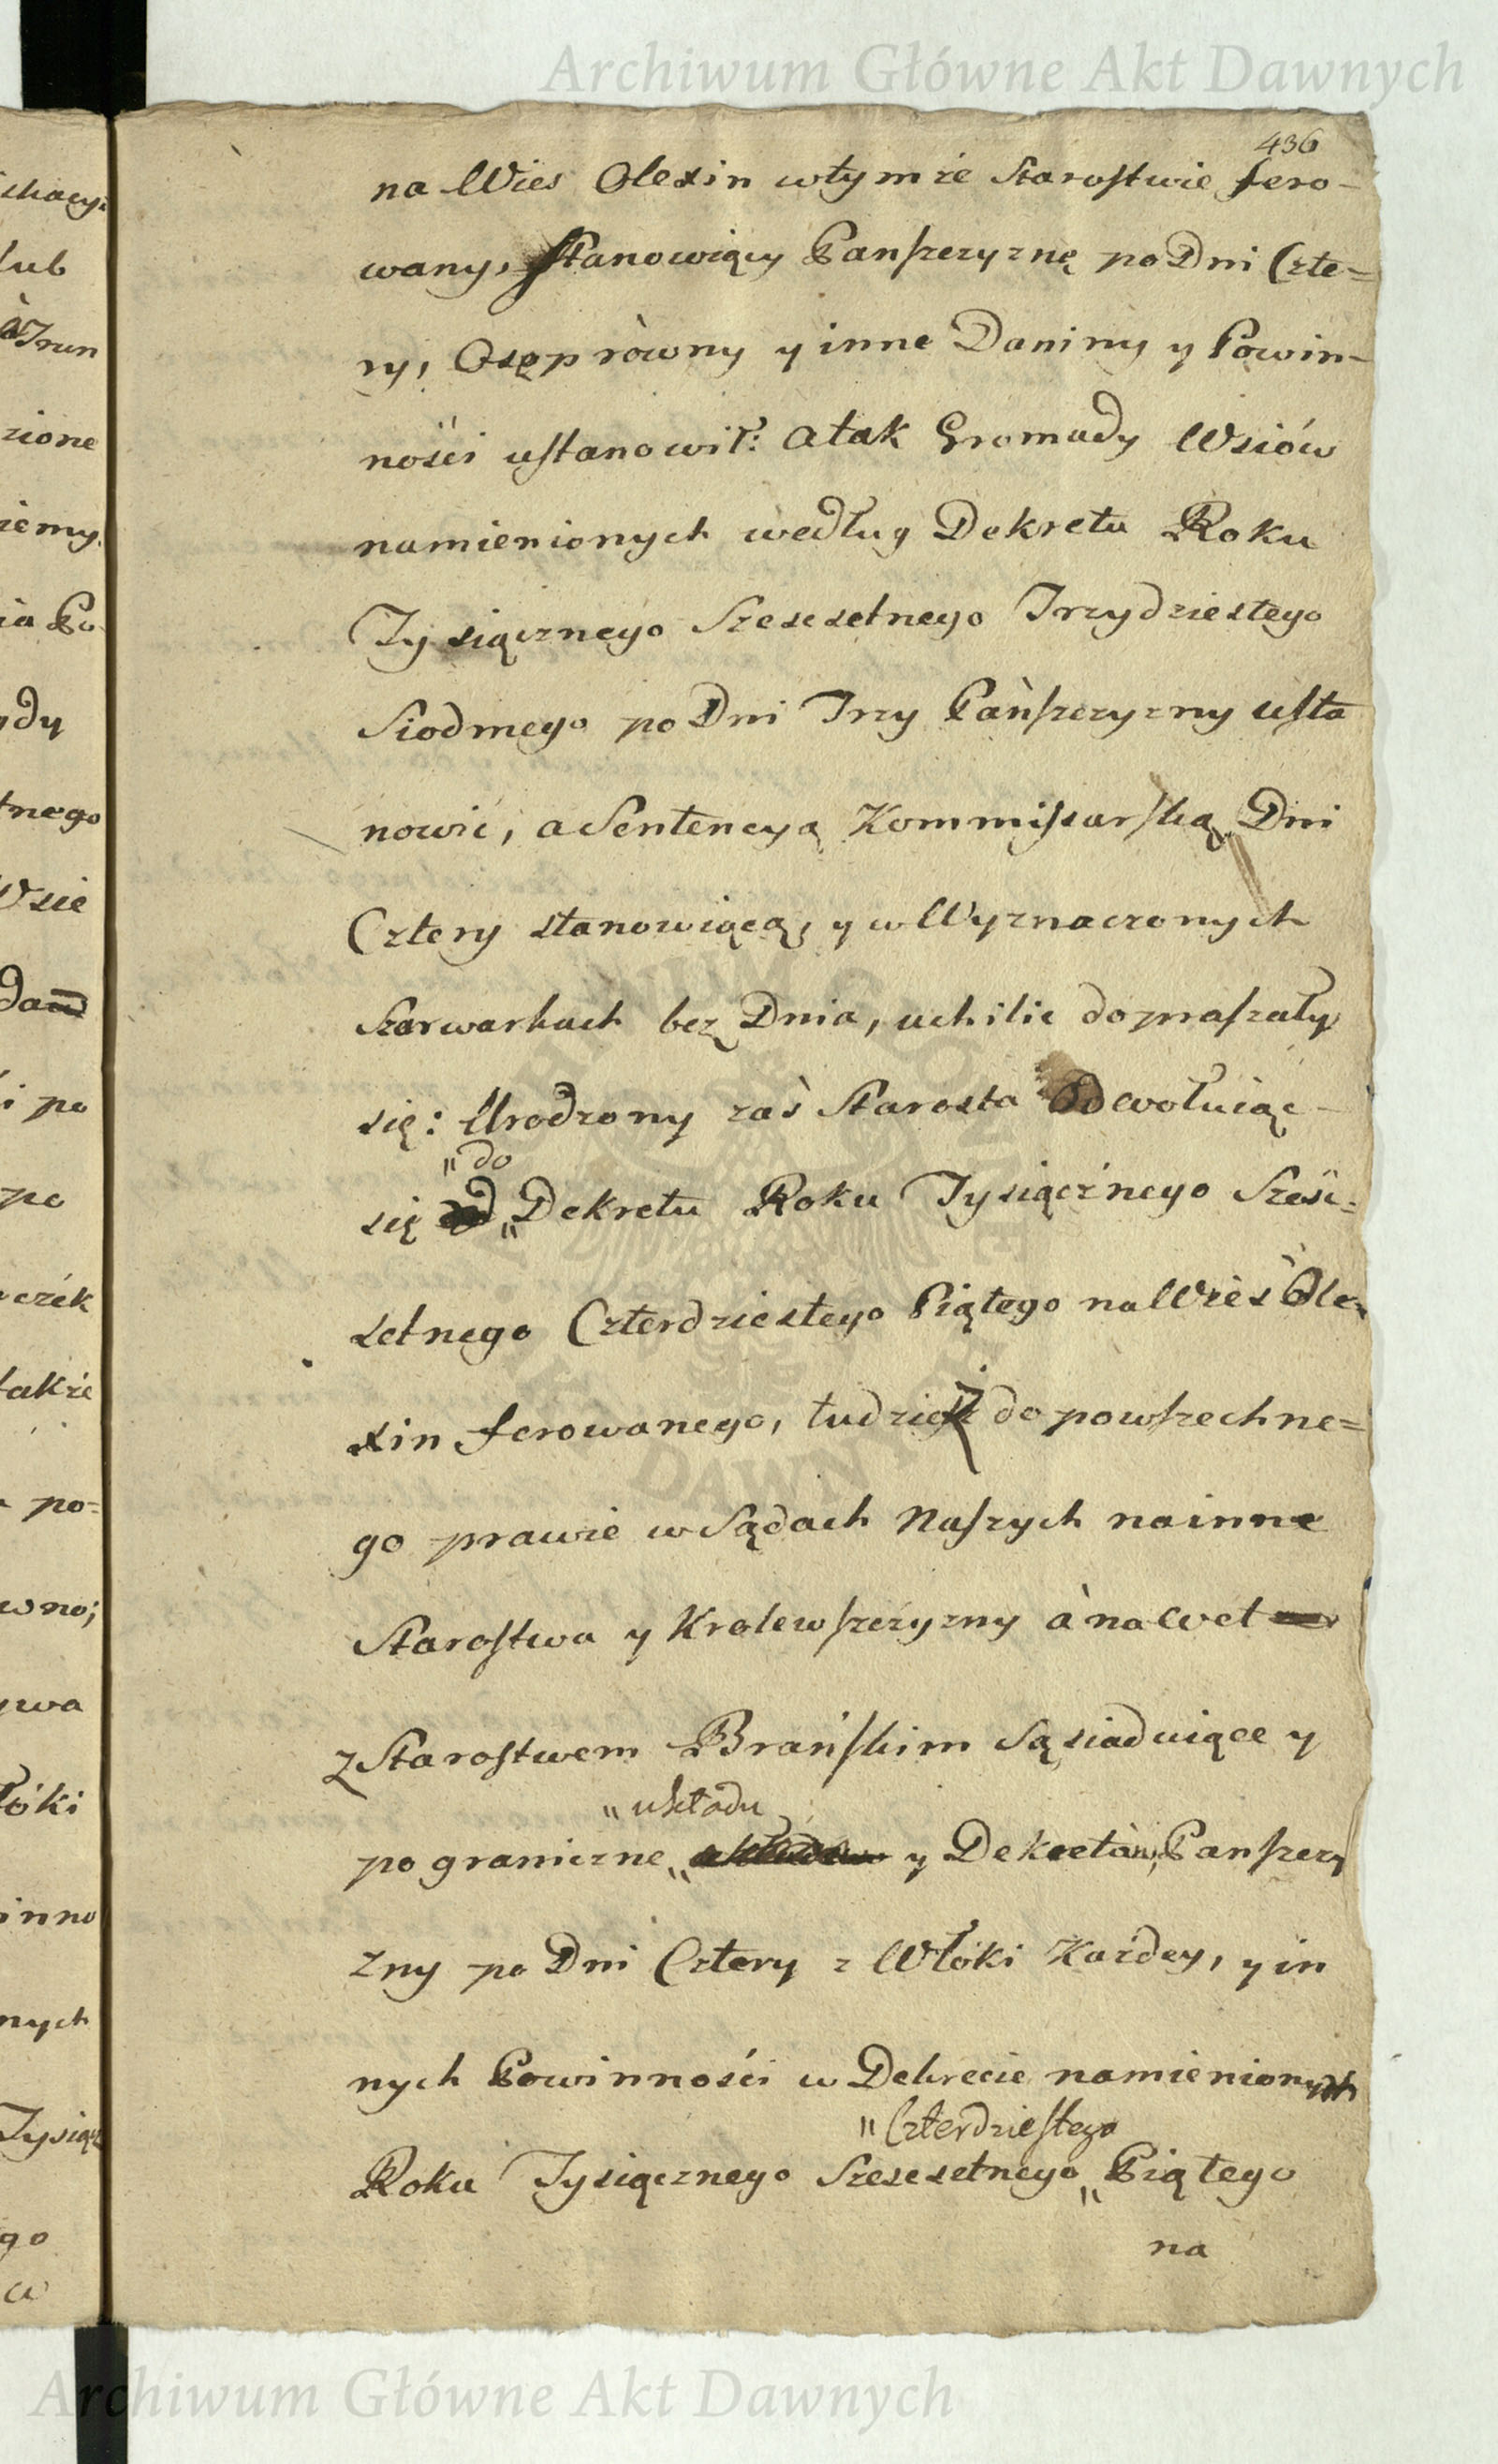 Archiwum Główne Akt Dawnych
436
na Wies Olexin w tymże Starostwie fero-
wany, stanowiący Panszczyznę po Dni Czte=
ry, Osęp równy y inne Daniny y Powin-
ności ustanowił: a tak Gromady Wsiów
namienionych według Dekretu Roku
Tysiącznego Szescsetnego Trzydziestego
Siodmego po Dni Trzy Pańszczyzny usta
nowić, a Sentencyą Kommissarską Dni
Cztery stanowiącą, y w Wyznaczonych
Szarwarkach bez Dnia, uchilić dopraszały
się: Urodzony zaś Starosta Odwołuiąc-
"do
się od " Dekretu Roku Tysiącznego Sześć=
setnego Czterdziestego Piątego na Wieś Ole=
xin ferowanego, tudzież do powszechne=
go prawie w Sądach Naszych na inne
Starostwa y Krolewszczyzny à nawet
z Starostwem Brańskim Sąsiaduiące y
"układu
pograniczne " y Dekretów Panszczy
zny po Dni Cztery z Włóki Każdey, y in
nych Powinności w Dekrecie namienionych
"Czterdziestego
Roku Tysiącznego Szescsetnego " Piątego
na
chacy:
lub
à Trun
zione
iemy.
ia Po
ydy
tnego
Wsie
i po
po
takźe
po=
wno;
ywa
łóki
inno
nych
Tysiącz
go
Archiwum Główne Akt Dawnych